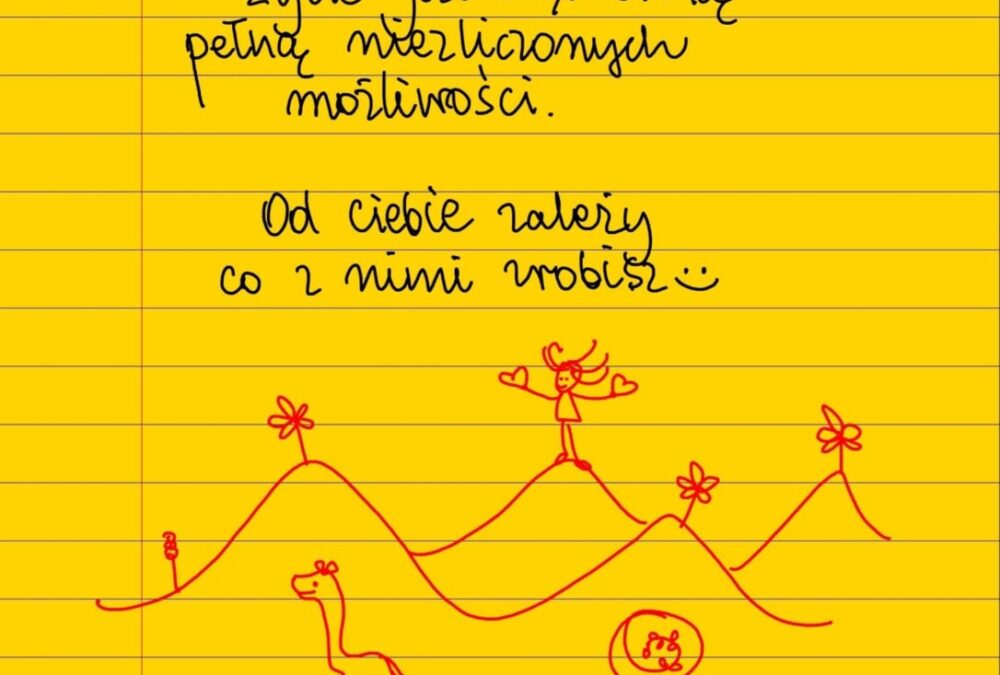 pełną niezliczonych
możliwości.
Od ciebie zależy
co z nimi zrobisz :)